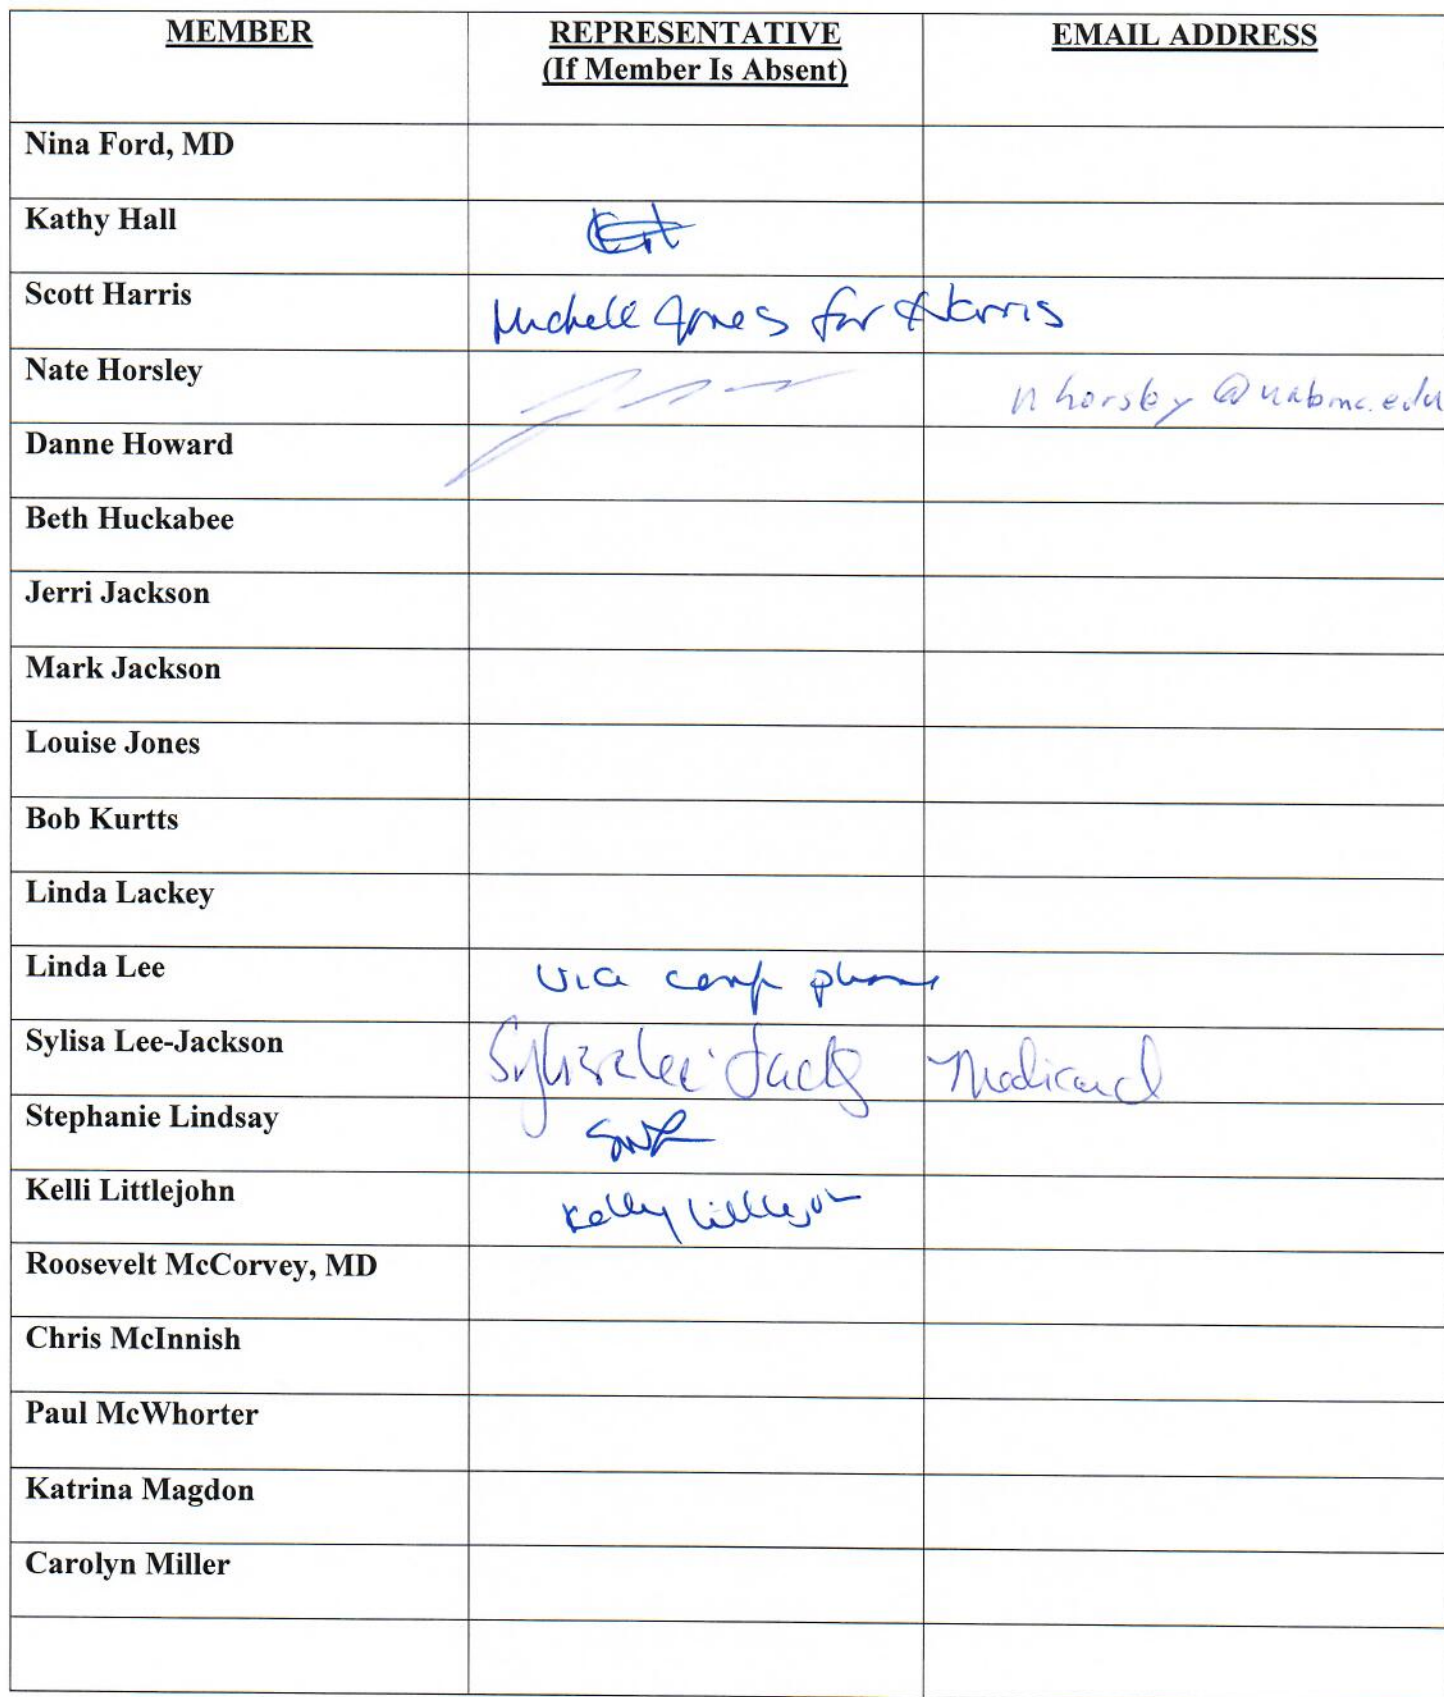 MEMBER REPRESENTATIVE EMAIL ADDRESS
(If Member Is Absent)
Nina Ford, MD
Kathy Hall
Scott Harris Michell Jones for Harris
Nate Horsley nhorsley@uabmc.edu
Danne Howard
Beth Huckabee
Jerri Jackson
Mark Jackson
Louise Jones
Bob Kurtts
Linda Lackey
Linda Lee via conf phone
Sylisa Lee-Jackson Medicaid
Stephanie Lindsay
Kelli Littlejohn Kelly Littlejoh
Roosevelt McCorvey, MD
Chris McInnish
Paul McWhorter
Katrina Magdon
Carolyn Miller